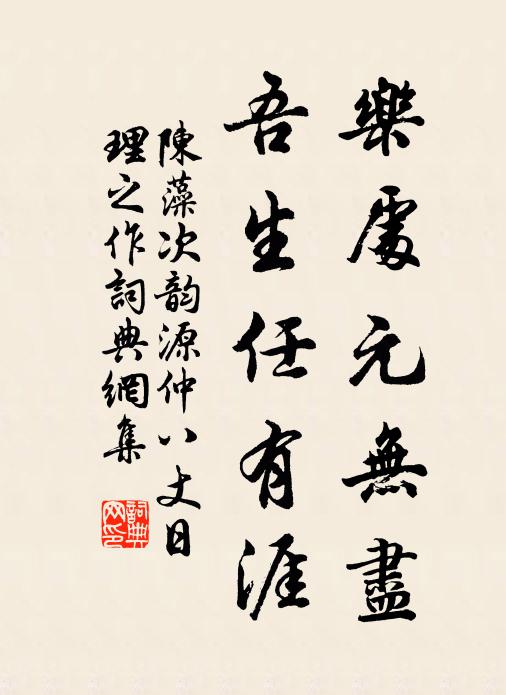 樂處元無盡
吾生任有涯
陳藻次韵源仲八丈目
理之作詞典網集
詞典
网印